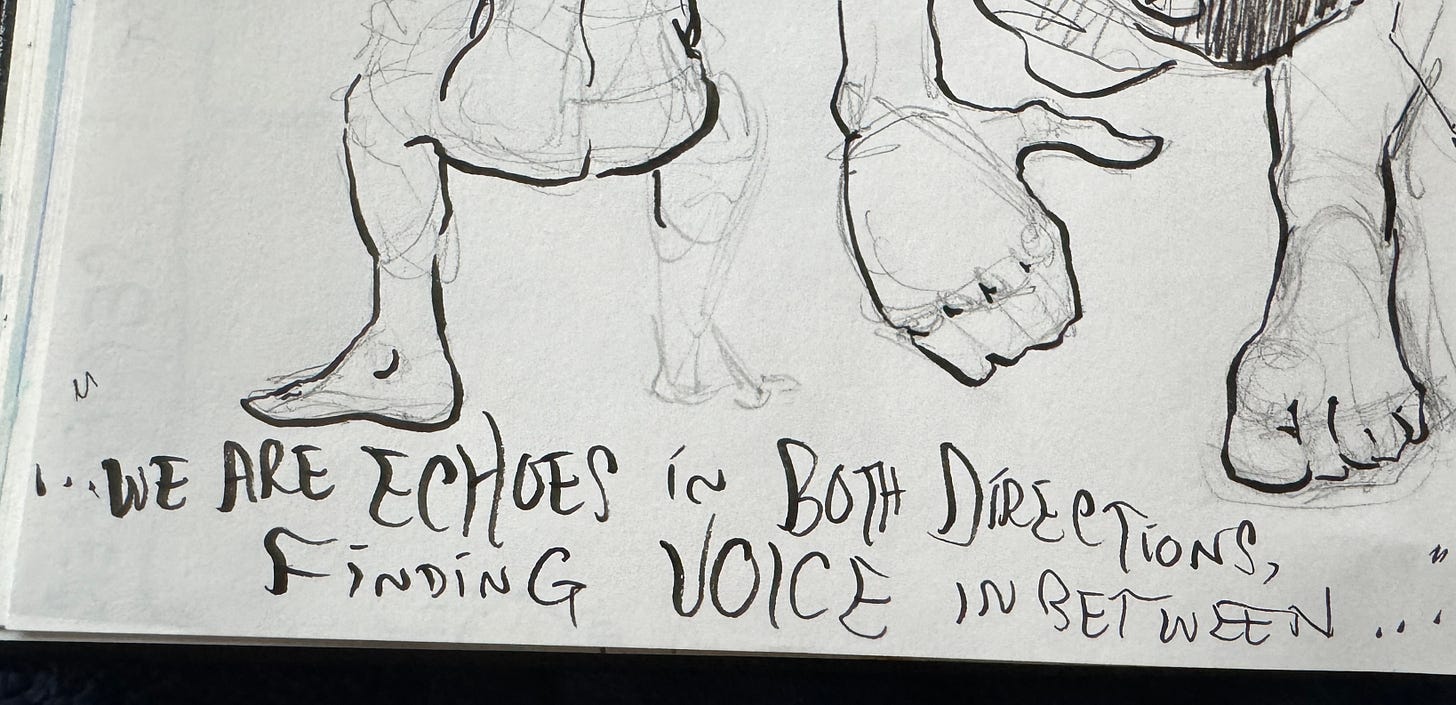 "...WE ARE ECHOES iN BOTH DiRECTiONS,
FiNDiNG VOICE IN BETWEEN..."